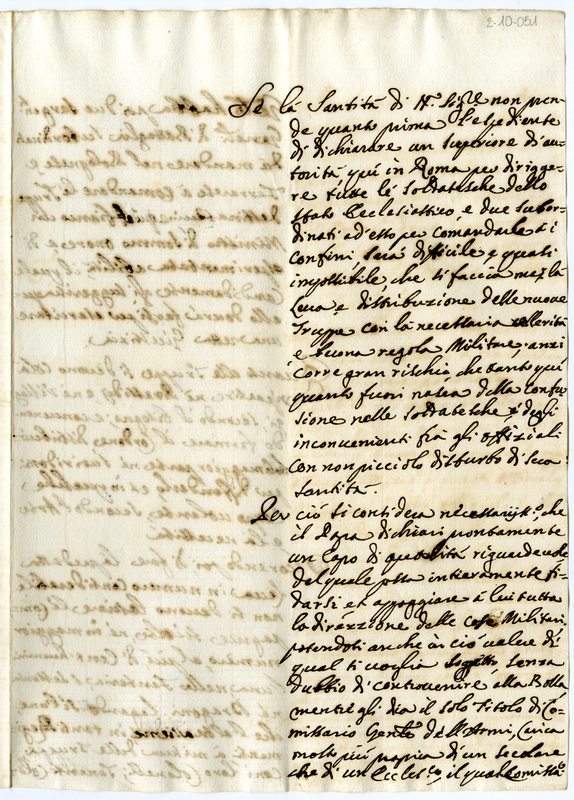 2-10-051
Se la Santità di N.ro Sig.re non pren-
de quanto prima l'espediente
di dichiarare un superiore di au-
torità quì in Roma per dirigge-
re tutte le soldatesche dello
Stato Ecclesiastico, e due subor-
dinati ad esso per comandarle a i
confini, sarà difficile e quasi
impossibile, che si faccia mai la
Leva, e distribuzione delle nuove
Truppe con la necessaria celerità
e buona regola Militare, anzi
corre gran rischio, che tanto quì
quanto fuori nasca della confu-
sione nelle soldatesche, e degli
inconvenienti frà gli offiziali
con non picciolo disturbo di Sua
Santità.
Per ciò si considera necessariss.o, che
il Papa dichiari prontamente
un Capo di qualità riguardevole
del quale possa intieramente fi-
darsi et appoggiare à lui tutta
la direzzione delle cose Militari,
potendosi anche in ciò valere di
qual si voglia soggetto, senza
dubbio di contravenire alla Bolla
mentre gli dia il solo Titolo di Co-
missario Gen.le dell'Armi, Carica
molto più propria d'un secolare
che di un Eccles.co, il qual Comiss.o